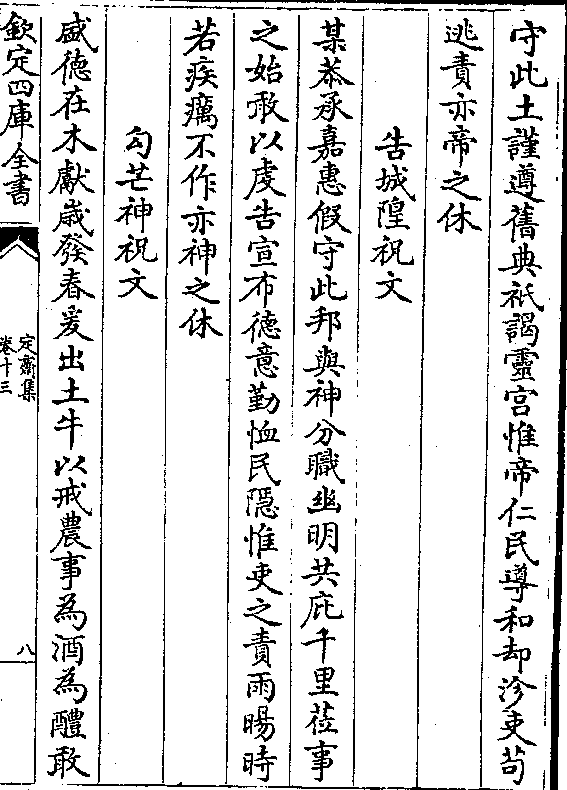 守此土謹遵舊典祇謁靈宫惟帝仁民導和却沴吏茍
逃責亦帝之休
告城隍祝文
某恭承嘉惠假守此邦與神分職幽明共庇千里莅事
之始敢以虔告宣布德意勤恤民隠惟吏之責雨暘時
若疾癘不作亦神之休
勾芒神祝文
盛德在木獻歳發春爰出土牛以戒農事為酒為醴敢
欽定四庫全書
定齋集
卷十三
八